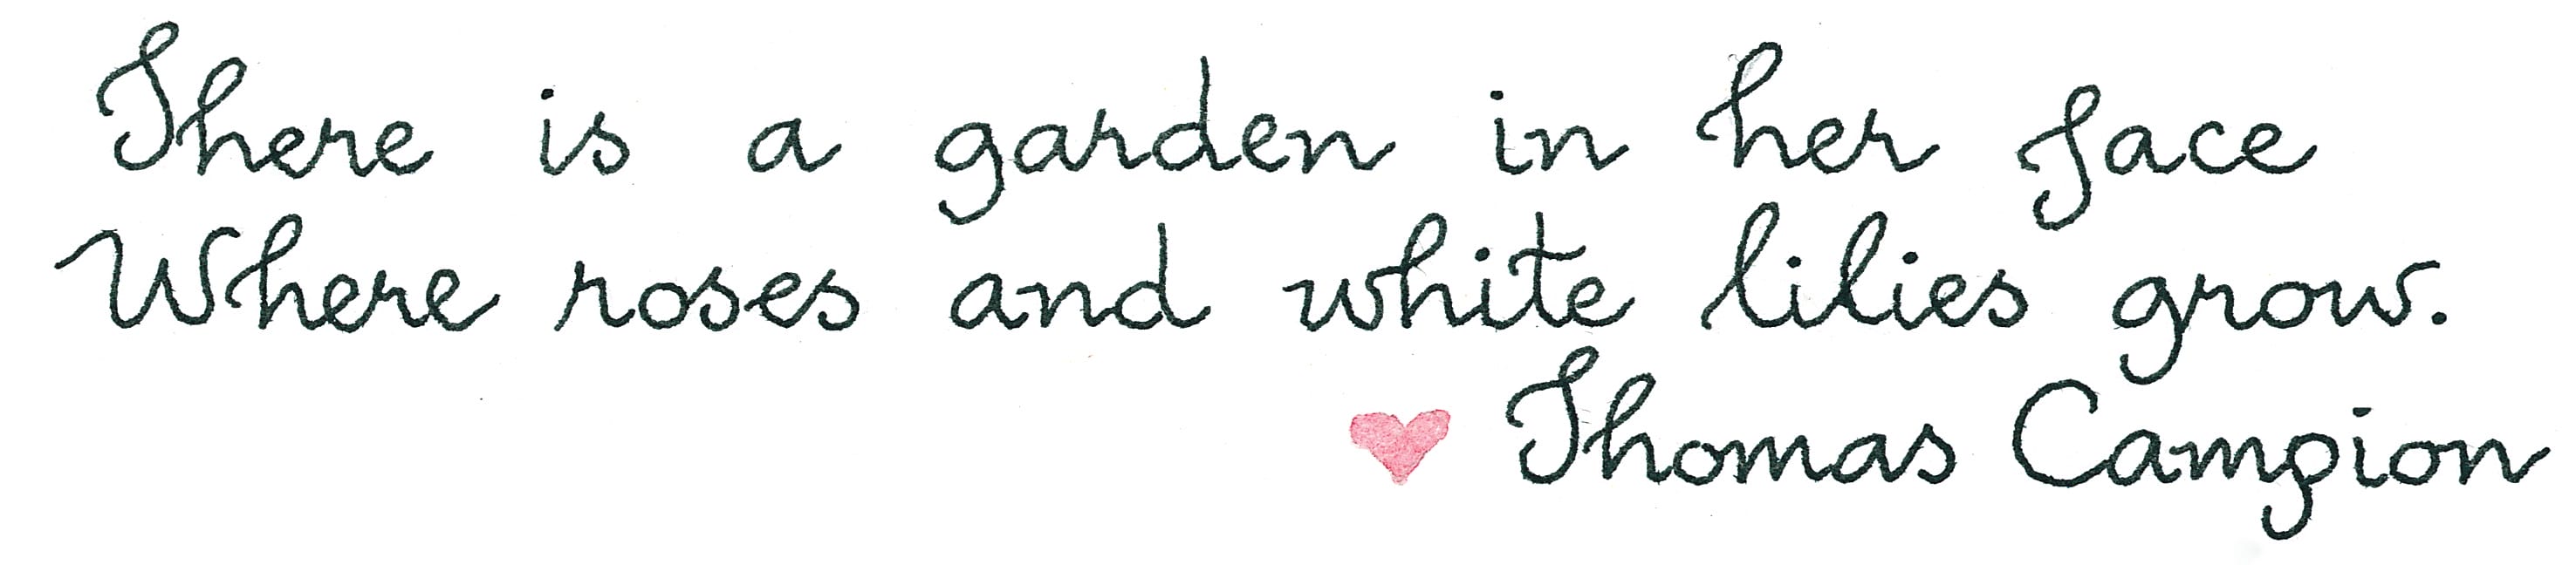 There is a garden in her face
Where roses and white lilies grow.
♥ Thomas Campion